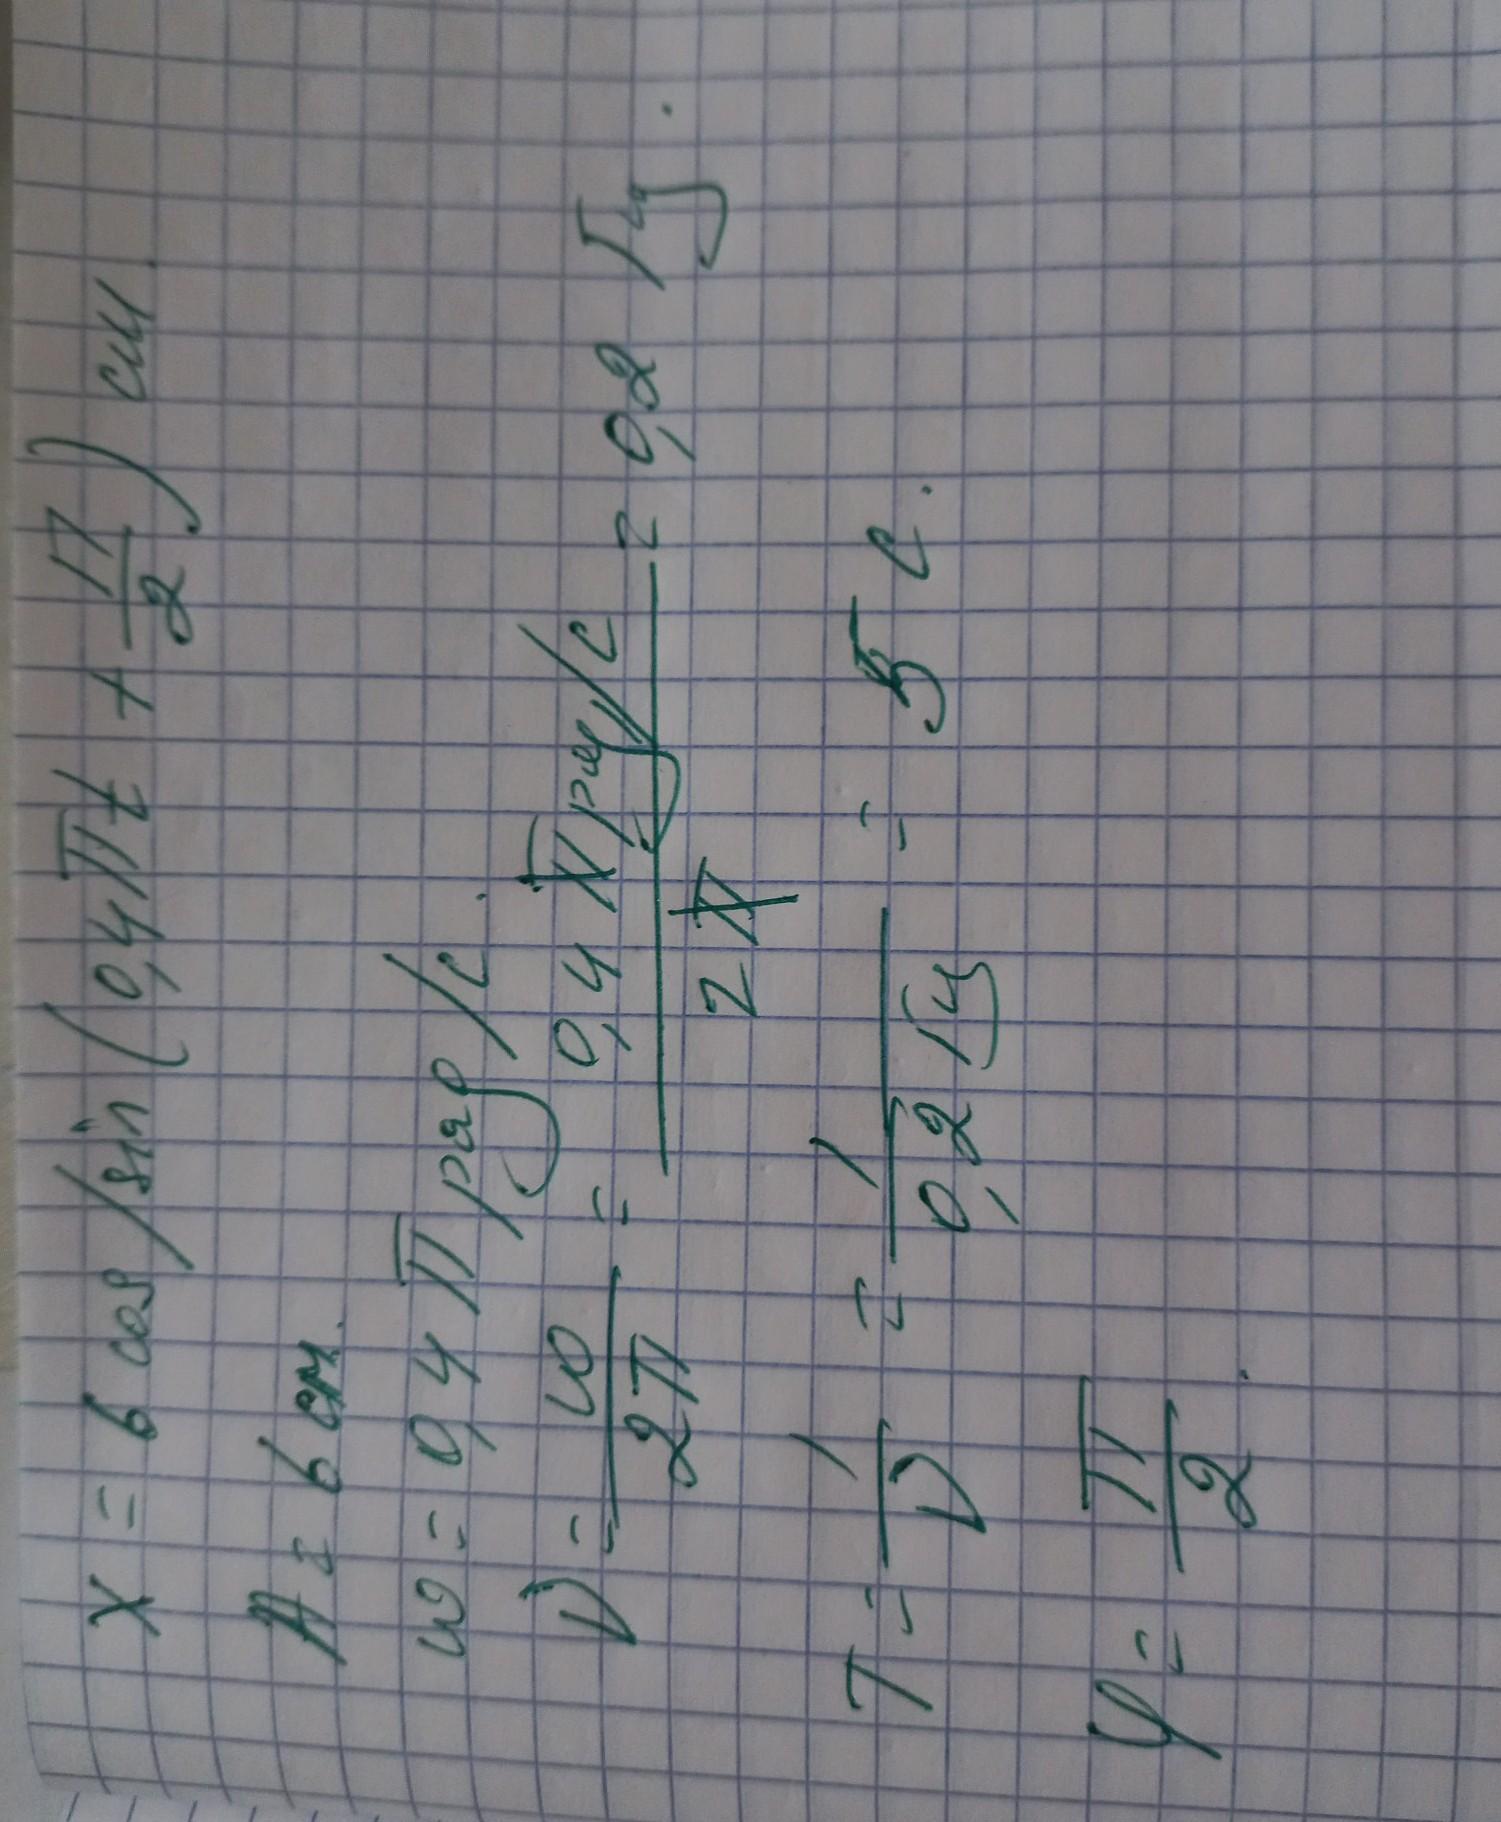 x = 6 cos/sin (0,4πt + π/2) см.
A = 6 см.
ω = 0,4 π рад/с.
ν = ω/2π = 0,4 π рад/с / 2 π = 0,2 Гц.
T = 1/ν = 1/0,2 Гц = 5 с.
φ = π/2.